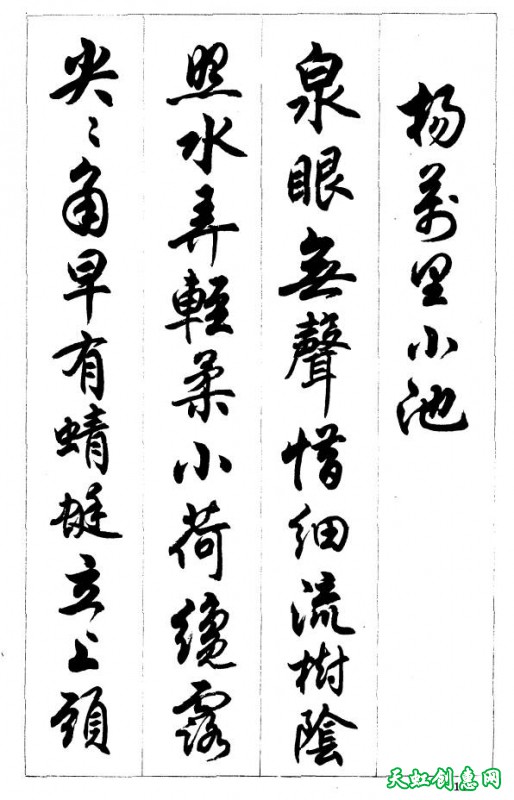 杨萬里小池
泉眼無聲惜細流樹陰
照水弄輕柔小荷纔露
尖〻角早有蜻蜓立上頭
天虹创惠网